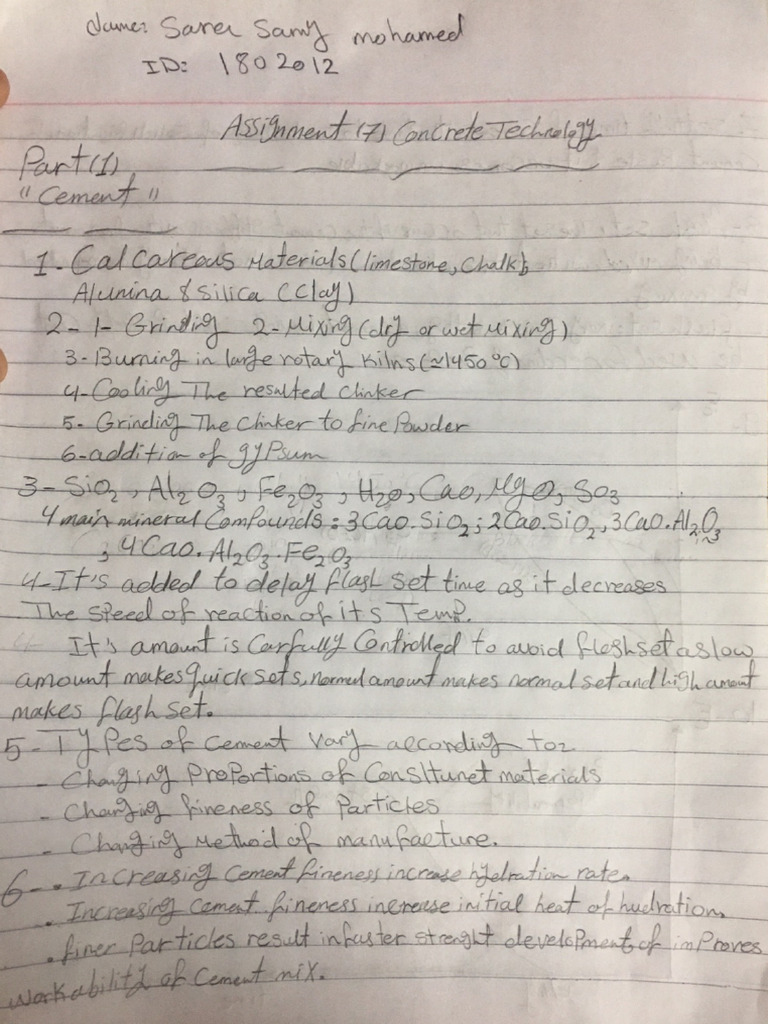 Name: Sara Samy mohamed
ID: 1802012
Assignment (7) Concrete Technology
Part (1)
"Cement"
1- Calcareous Materials (limestone, Chalk),
Alunina & Silica (Clay)
2- 1- Grinding 2- Mixing (dry or wet Mixing)
3- Burning in large rotary Kilns (≃1450 °C)
4- Cooling The resulted Clinker
5- Grinding The Clinker to fine Powder
6- addition of gypsum
3- SiO2, Al2O3, Fe2O3, H2O, CaO, MgO, SO3
4 main mineral Compounds: 3CaO.SiO2; 2CaO.SiO2, 3CaO.Al2O3
; 4CaO.Al2O3.Fe2O3
4- It's added to delay flash set time as it decreases
The speed of reaction of its Temp.
It's amount is Carfully Controlled to avoid fleshset as low
amount makes quick sets, normal amount makes normal set and high amount
makes flash set.
5- Types of cement vary according to:
- Changing Proportions of Consltunet materials
- Changing fineness of Particles
- Changing Method of manufacture.
6- . Increasing Cement fineness increase hydration rate.
. Increasing Cement fineness increase initial heat of hudration.
. finer Particles result in faster strenght development, of improves
workability of Cement mix.